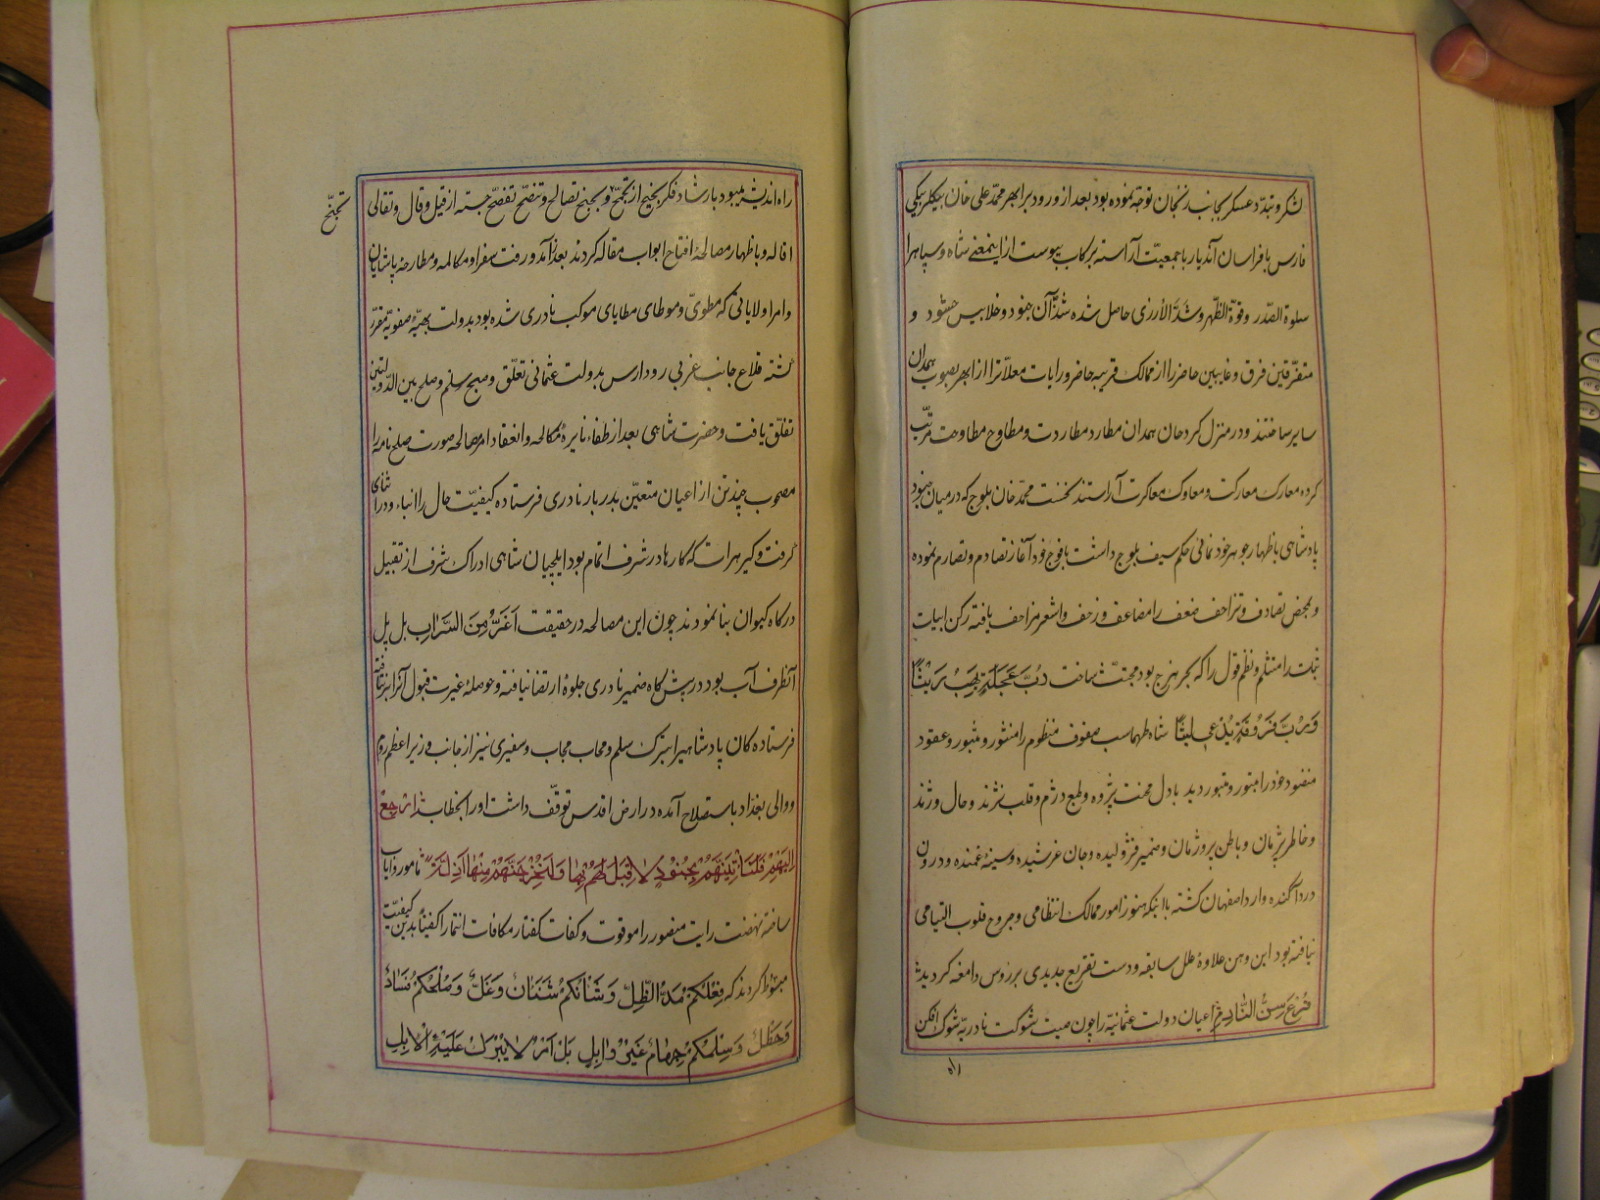 لشکر و تبدد عسکر بجانب زنجان توجه نموده بود بعد از ورود برابهر محمد علی خان بیکلربیکی
فارس با فراسان آندیار با جمعیت آراسته برکاب پیوست از اینمعنی شاه و سپاهرا
سلوة الصدر و قوة الظهر و شد الازری حاصل شده آن جنود و
متفرقین فرق و غایبین حاضر را از ممالک قریبه حاضر و رایات معلا ترا از ابهر بصوب همدان
سایر ساختند و در منزل کردحان همدان مطارد مطاردت و مطاوح مطاوحت مرتب
کرده معارک معارکت و معاوک معاکرت آراستند نخست محمد خان بلوچ که در میان جنود
پادشاهی باظهار جوهر خود نمائی حکم سیف بلوج داشت با فوج خود آغاز تصادم و تصارم نموده
و بمحض تصادف و تزاحف ضعف را مضاعف و زحف و اشعر مزاحف یافته رکن ابیات
را منثلم و نظم قول را که بحر هزج بود مجتث ساخت رب عجلة تهب ریثا
و رب فروقة یدعی لیثا شاه طهماسب صفوف منظوم را منثور و مثبور و عقود
منضود خود را مبتور و متبور دید با دل محنت پژوه و طبع دژم و قلب نژند و حال و ژند
و خاطر پژمان و باطن پروژمان و ضمیر فژولیده و جان خرشیده و سینهٔ غمنده و درون
درد آکنده وارد اصفهان کشته با اینکه هنوز امور ممالک انتظامی و جروح قلوب التیامی
نیافته بود این وهن علاوهٔ علل سابقه و دست تقریع جدیدی بر رؤس دامغه کردید
قرع سن النادم اعیان دولت عثمانیه را چون صیت شوکت نادریه شوک افکن
راه
راه اندیشه میبود بارشاد فکر بخیخ از تجمح و بجنح تصالح و تنصح تفصح جسته از قیل و قال و تقالی
تجنح
اقاله و با ظهار مصالحهٔ افتاح ابواب مقاله کردند بعد از آمد و رفت سفرا و مکالمه و مطارحه پاشایان
و امرا ولایاتی که مطوی و موطای مطایای موکب نادری شده بود بدولت بهیهٔ صفویه مقرر
کشته قلاع جانب غربی رود ارس بدولت عثمانی تعلق و صبح سلم و صلح بین الدولتین
تفلق یافت و حضرت شاهی بعد از طفاء نایرهٔ مکالحه و انعقاد امر مصالحه صورت صلح نامه را
مصحوب چند تن از اعیان متعین بدربار نادری فرستاده کیفیت حال را انباء و در اثنای
کرفت و کیر هرات که کارها در شرف اتمام بود ایلچیان شاهی ادراک شرف از تقبیل
درکاه کیوان بنا نمودند چون این مصالحه در حقیقت اغر من السراب بل پل
آنطرف آب بود در پیشکاه ضمیر نادری جلوهٔ ارتضا نیافته و حوصلهٔ غیرت قبول آنرا بر نتافته
فرستاده کان پادشاهیرا بترک سلم و محاب مجاب و سفیری نیز از جانب وزیر اعظم روم
و والی بغداد باستصلاح آمده در ارض اقدس توقف داشت او را بخطاب ارجع
الیهم فلنأتینهم بجنود لا قبل لهم بها و لنخرجنهم منها اذلة مامور و ایاب
ساخته نهضت رایت منصور را موقوت و کفات کفتار مکافات انتمار اکفیا بدین کیفیت
مبثوط کردند که فعلکم مد الظل و شانکم شنان و غل و صلحکم فساد
و حظل و سلمکم جهام غیر وابل بل امر لا یبرک علیه الابل